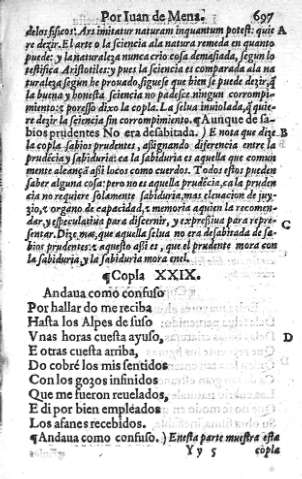 Por Iuan de Mena. 697
delos fisicos: Ars imitatur naturam inquantum potest: quie A
re dezir. El arte o la sciencia ala natura remeda en quanto
puede: y la naturaleza nunca crio cosa demasiada, segun lo
testifica Aristotiles: y pues la sciencia es comparada ala na
turaleza segun he prouado, siguese que bien se puede dezir, q̃
la buena y honesta sciencia no padesce ningun corrompi-
miento: & poresso dixo la copla. La selua inuiolada, q̃ quie-
re dezir la sciencia sin corrompimiento. ¶ Aunque de sa-
bios prudentes No era desabitada. ) E nota que dize B
la copla sabios prudentes, assignando diferencia entre la
prudẽcia y sabiduria: ca la sabiduria es aquella que comun
mente alcança assi locos como cuerdos. Todos estos pueden
saber alguna cosa: pero no es aquella prudẽcia, ca la pruden
cia no requiere solamente sabiduria, mas eleuacion de juy-
zio, & organo de capacidad, & memoria aquien la recomen-
dar, y especulatiua para discernir, y expressiua para repre- C
sentar. Dize mas, que aquella selua no era desabitada de sa-
bios prudentes: & aquesto assi es, que el prudente mora con
la sabiduria, y la sabiduria mora enel.
¶ Copla XXIX.
Andaua como confuso
Por hallar do me reciba
Hasta los Alpes de suso
Vnas horas cuesta ayuso, D
E otras cuesta arriba,
Do cobré los mis sentidos
Con los gozos infinidos
Que me fueron reuelados,
E di por bien empleados
Los afanes recebidos.
¶ Andaua como confuso. ) Enesta parte muestra esta
Y y 5 copla